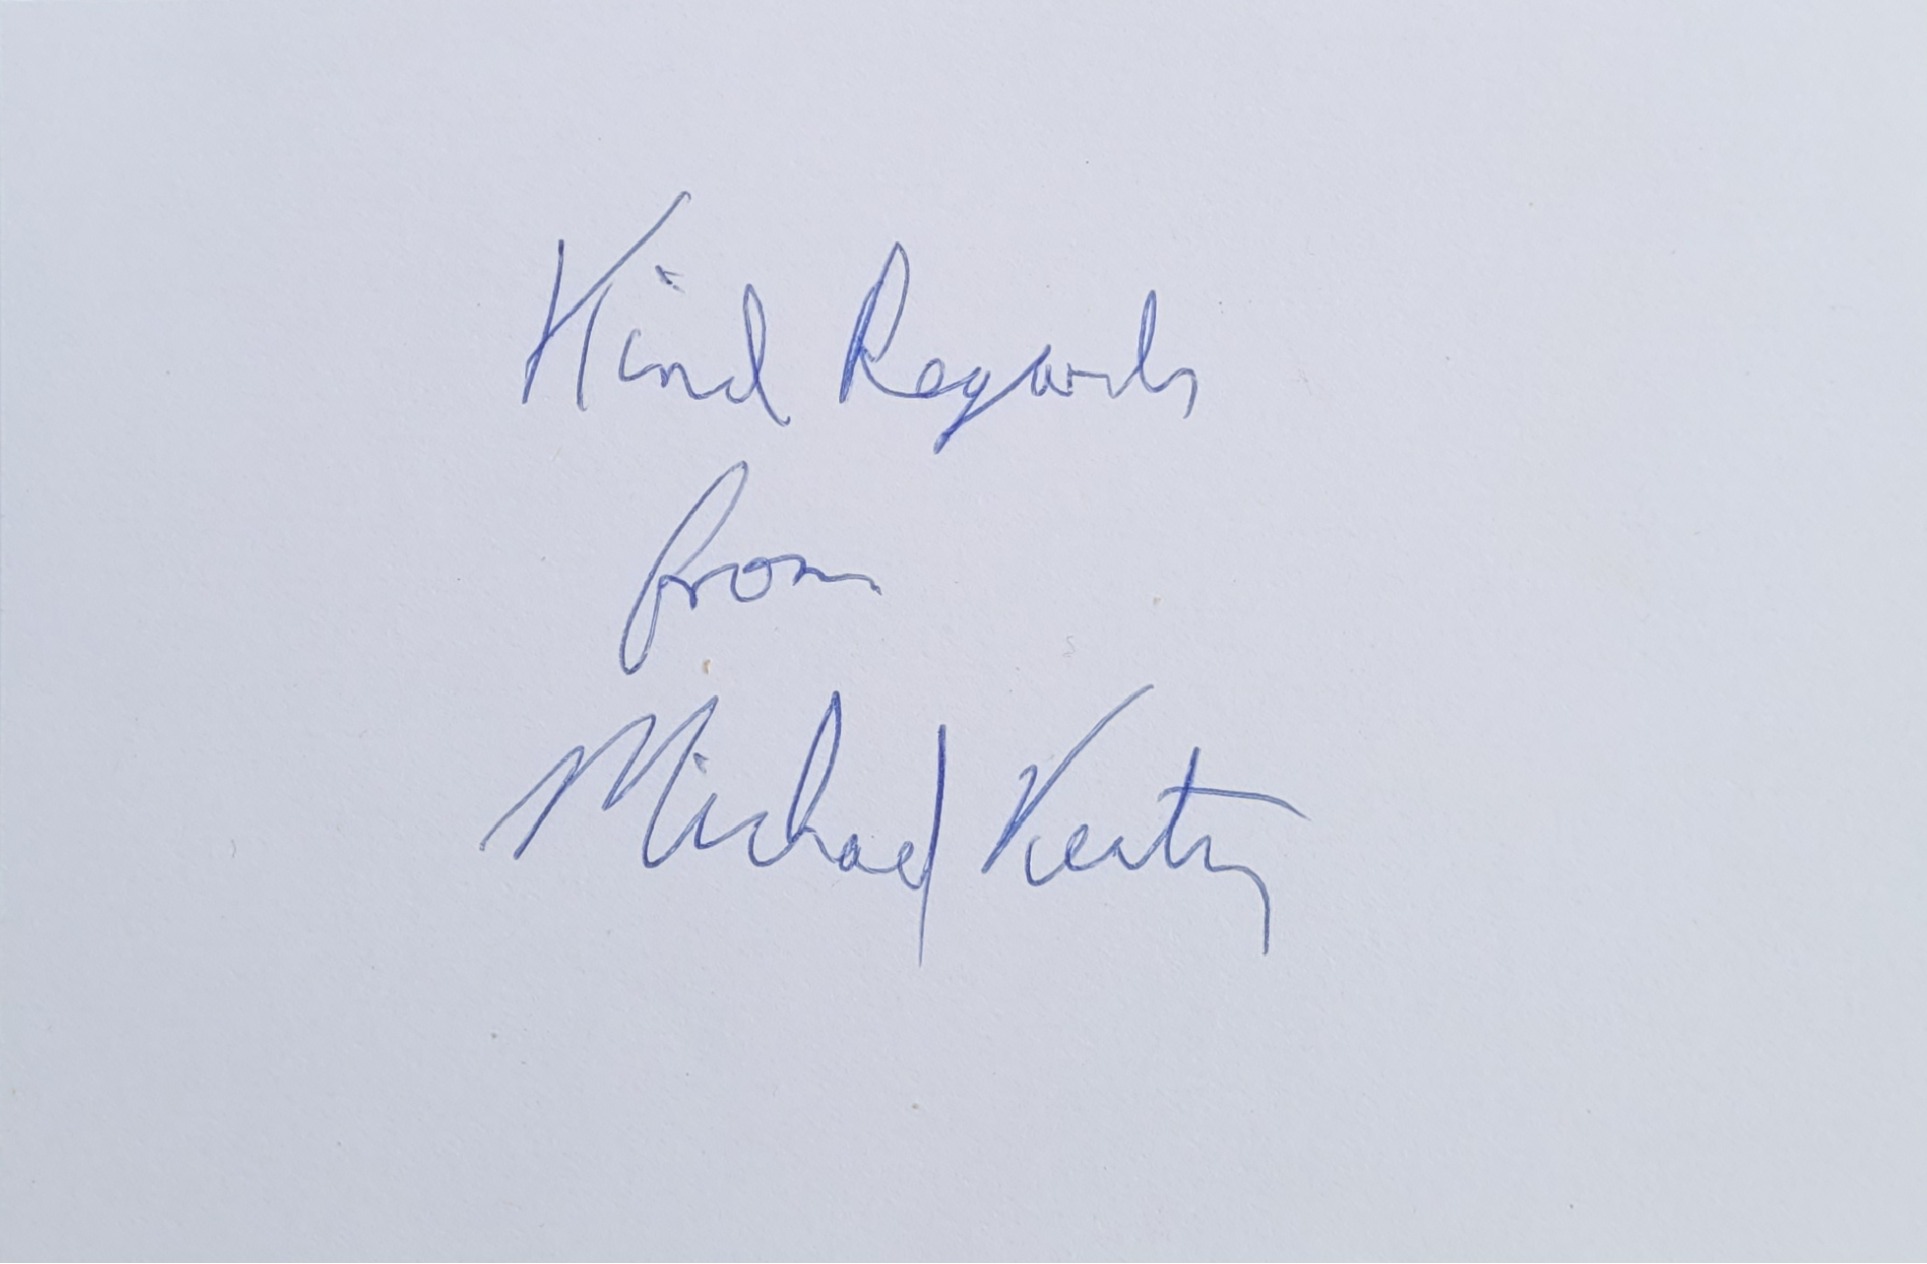 Kind Regards
from
Michael